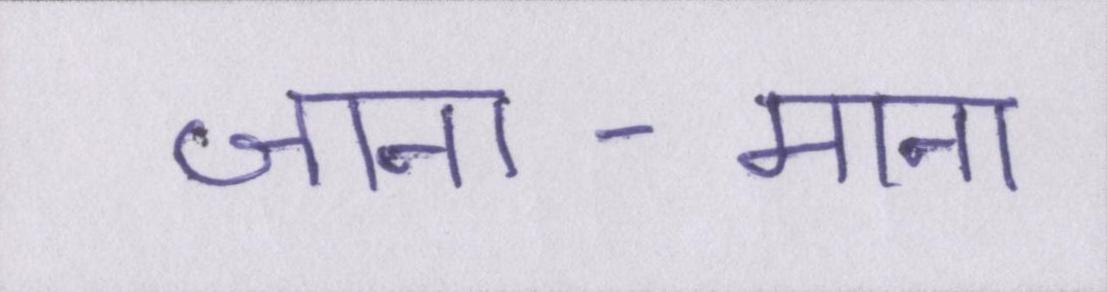 जाना - माना